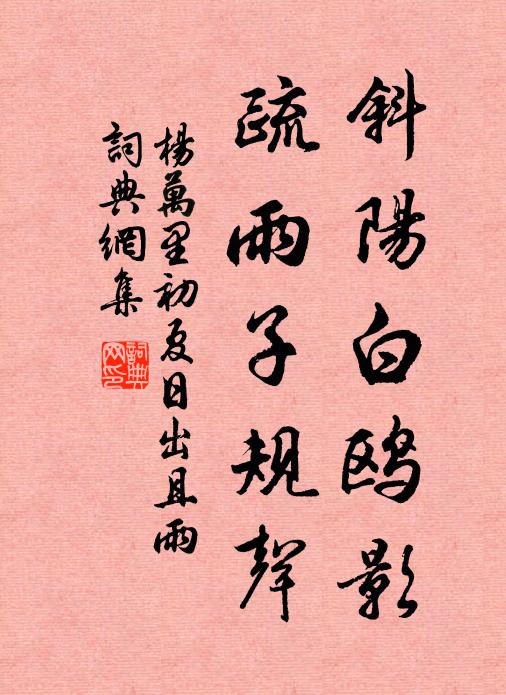 斜陽白鷗影
疏雨子規聲
楊萬里初夏日出且雨
詞典網集
詞典網印